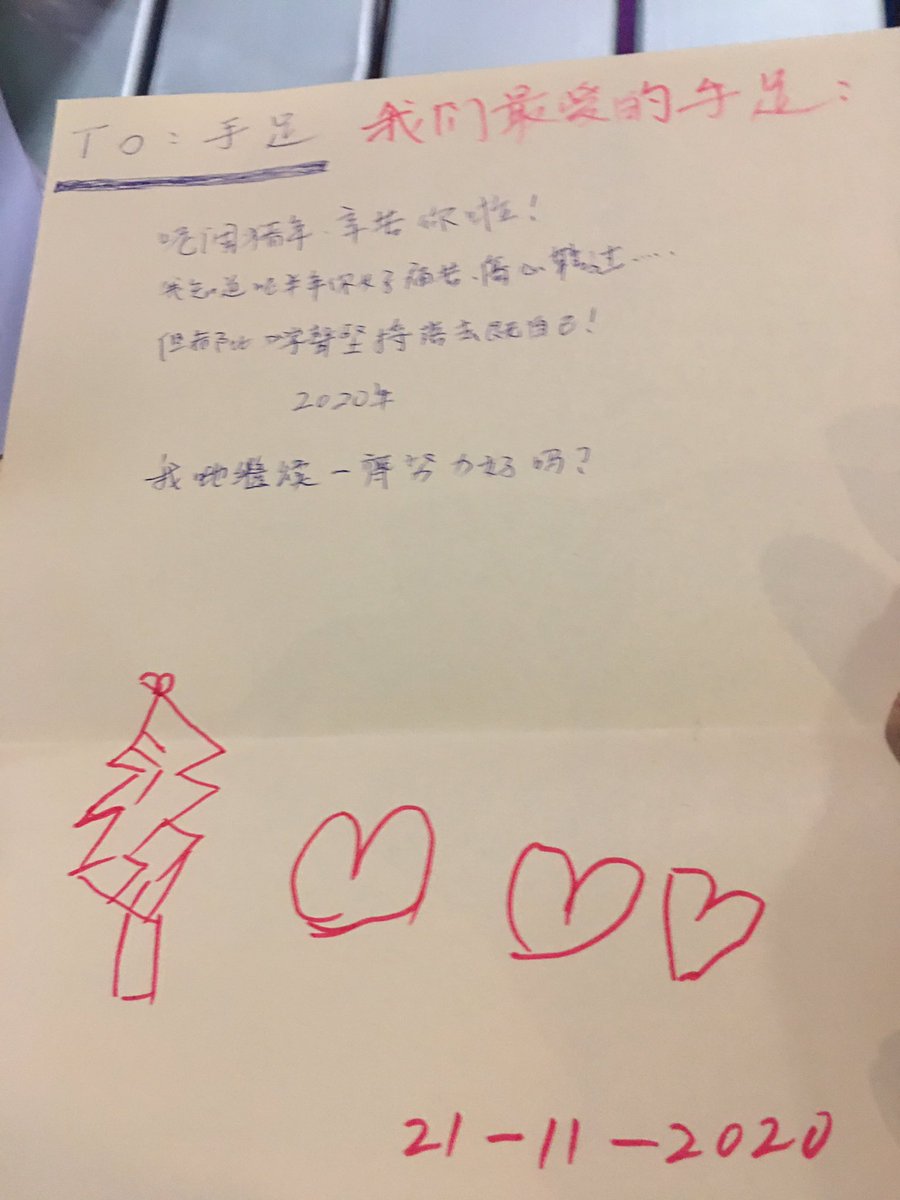 TO：手足 我们最爱的手足：
呢個豬年、辛苦你啦！
我知道呢半年你大了痛苦、傷心難過....
但都 堅持落去既自己！
2020年
我哋繼續一齊努力好嗎？
21-11-2020